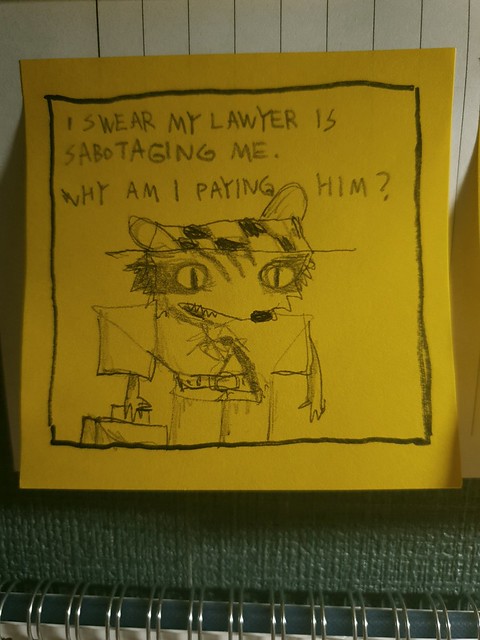 I SWEAR MY LAWYER IS
SABOTAGING ME.
WHY AM I PAYING HIM?